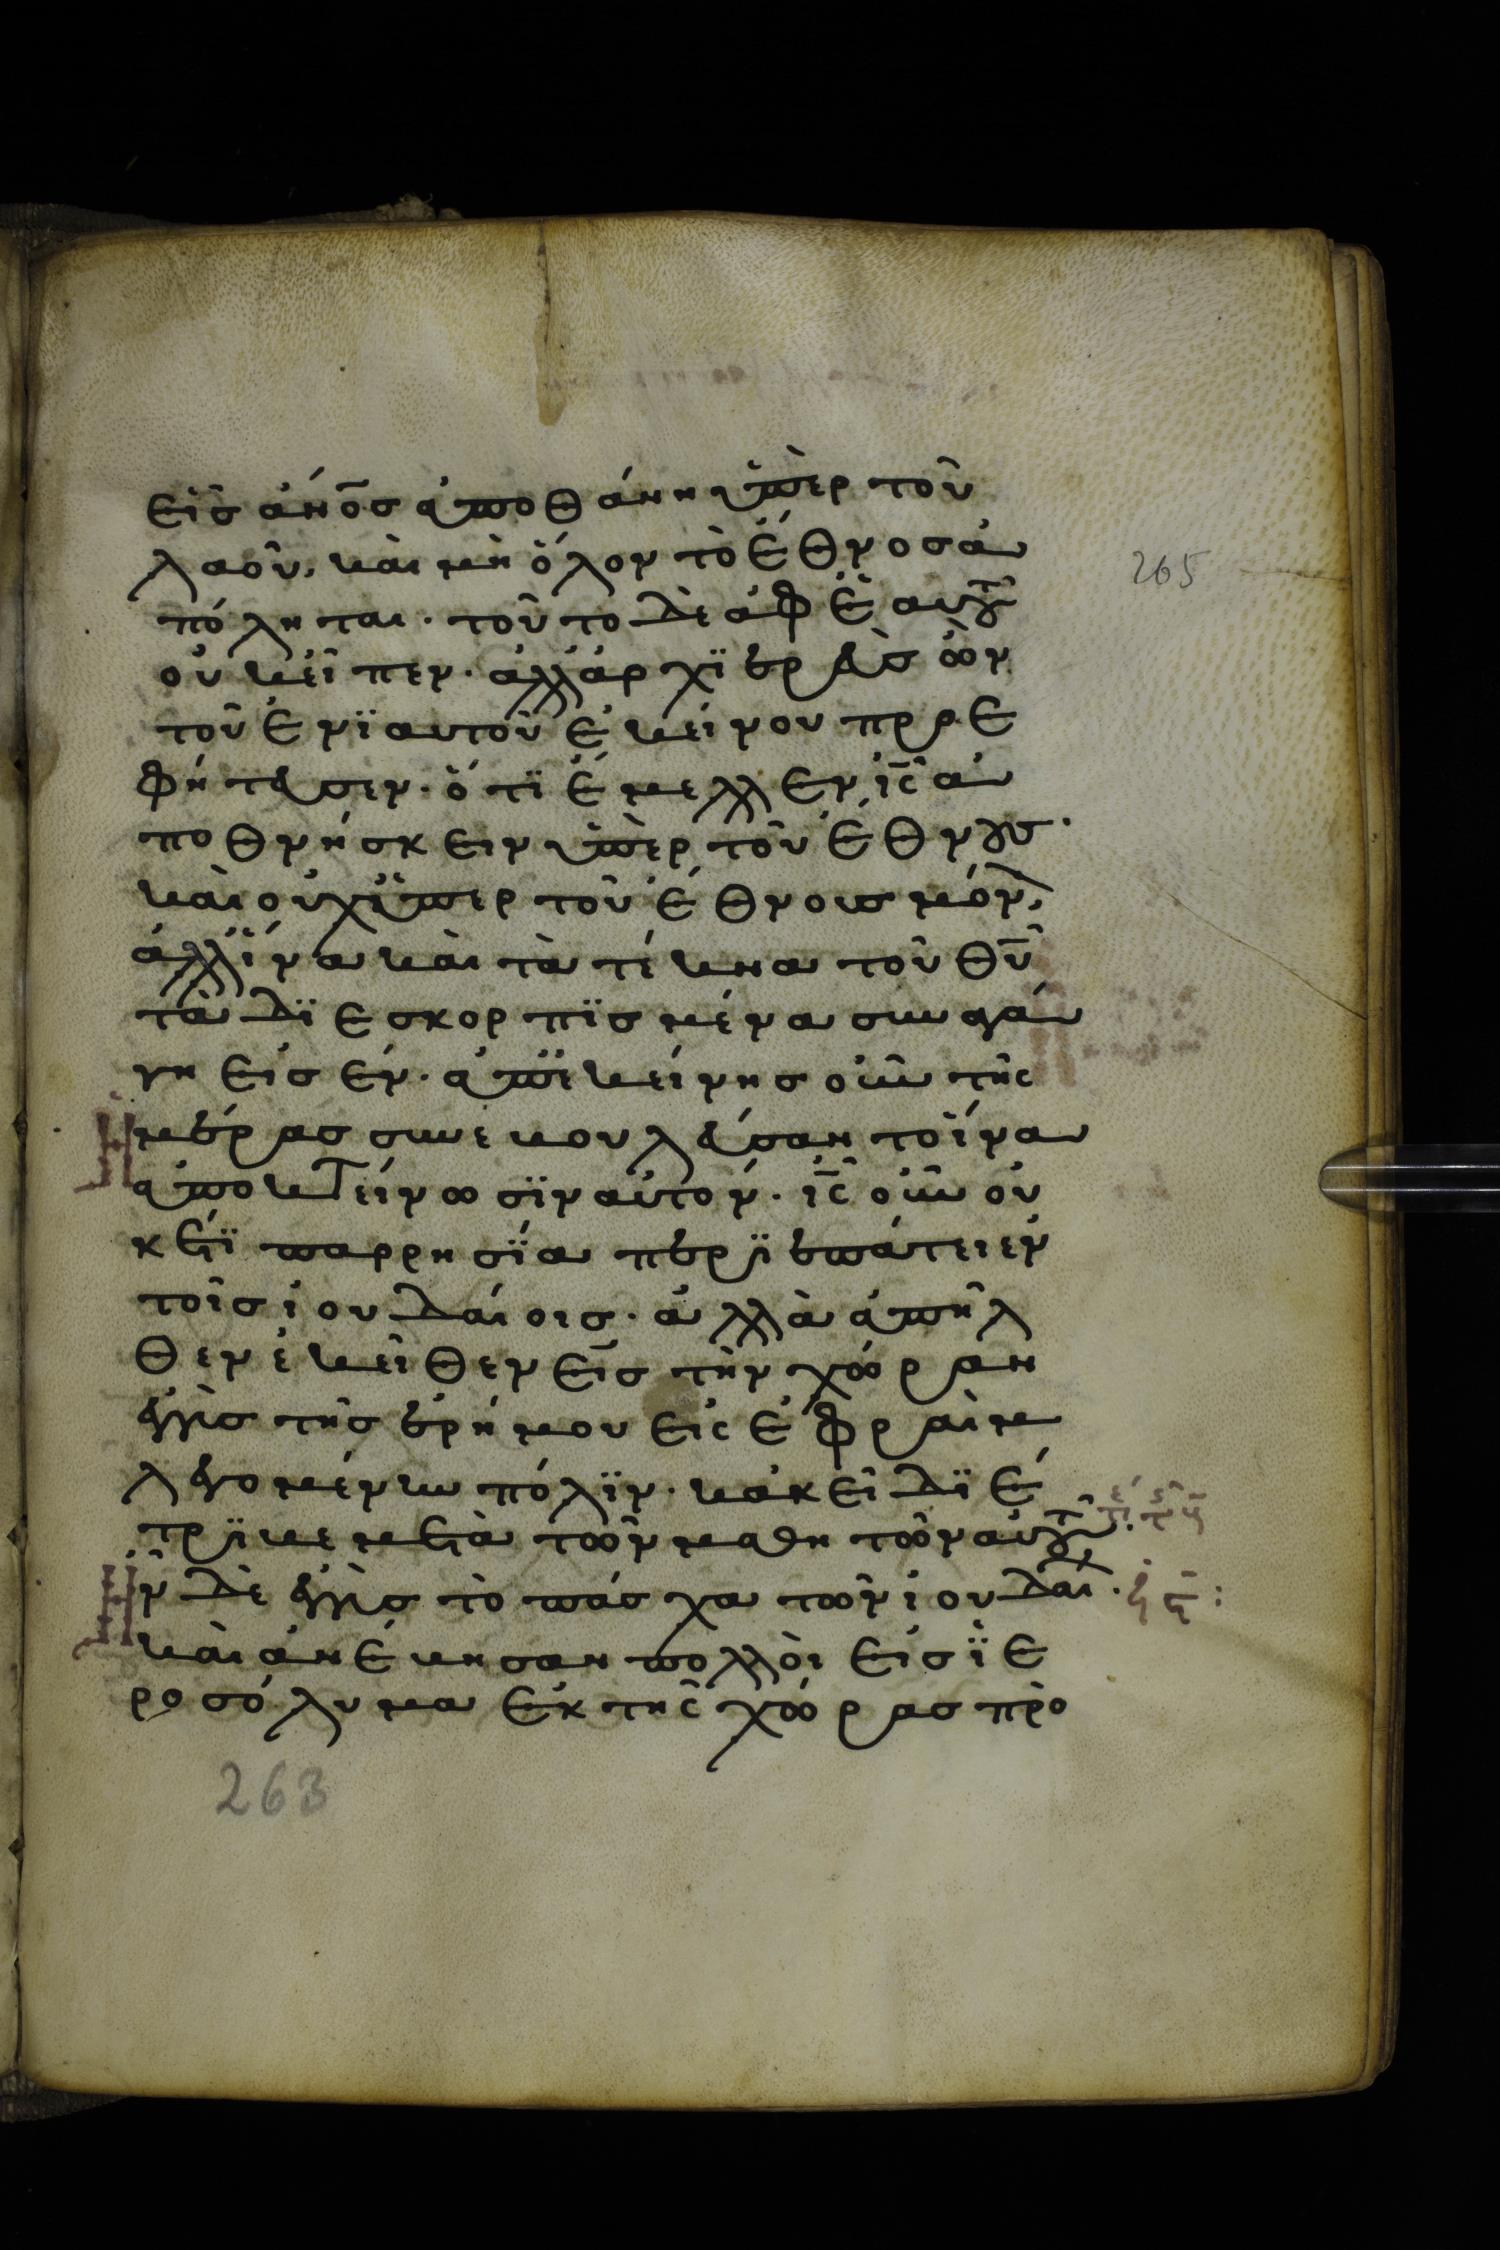 εἷς ἄνο̅ς ἀποθάνη ὑπὲρ τοῦ
λαοῦ, καὶ μὴ ὅλον τὸ ἔθνος ἀ
πόληται· τοῦτο δὲ ἀφ ἑαυτοῦ
οὐκ εἶπεν· ἀλλ ἀρχϊερεὺς ὢν
τοῦ ἐνϊαυτοῦ ἐκείνου προε
φήτευσεν· ὅτϊ ἔμελλεν ι̅ς̅ ἀ
ποθνήσκειν ὑπὲρ τοῦ ἔθνους·
καὶ οὐχ ὑπὲρ τοῦ ἔθνους μόνον,
ἀλλ ἵνα καὶ τὰ τέκνα τοῦ θ̅υ̅
τὰ διεσκορπϊσμένα συναγά
γη εἰς ἕν· ἀπ ἐκείνης οὖν τῆς
Ημέρας συνεβουλεύσαντο ἵνα
ἀποκτείνωσϊν αὐτόν· ι̅ς̅ οὖν οὐ
κέτϊ παρρησϊα περϊεπάτει ἐν
τοῖς ἰουδαίοις· ἀλλὰ ἀπῆλ
θεν ἐκεῖθεν εἰς τὴν χώραν
ἐγγὺς τῆς ἐρήμου εἰς ἐφραὶμ
λεγομένην πόλϊν· κἀκεῖ δϊέ
τρϊβε μετὰ τῶν μαθητῶν αὐτοῦ·
Ἦν δὲ ἐγγὺς τὸ πάσχα τῶν ἰουδαίων·
καὶ ἀνέβησαν πολλοὶ εἰς ϊε
ροσόλυμα ἐκ τῆς χώρας πρὸ
265
263